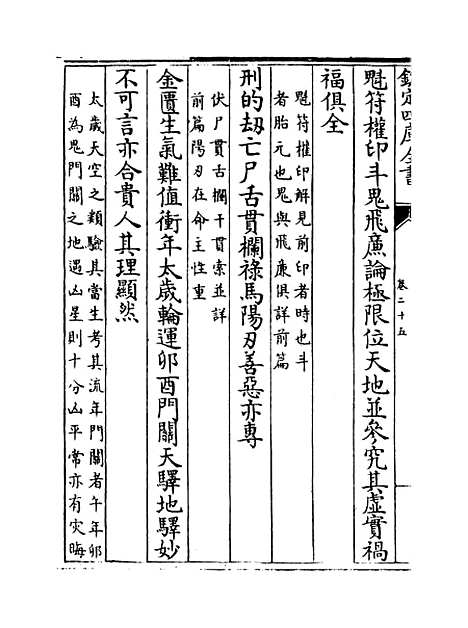 欽定四庫全書
卷二十五
魁符權印斗鬼飛廉論極限位天地並參究其虛實禍
福俱全
魁符權印解見前印者時也斗
者胎元也鬼與飛廉俱詳前篇
刑的刼亡尸舌貫攔祿馬陽刃善惡亦專
伏尸貫舌攔干貫索並詳
前篇陽刃在命主性重
金匱生氣難值衝年太歲輪運卯酉門關天驛地驛妙
不可言亦合貴人其理顯然
太歲天空之類驗其當生考其流年門關者午年卯
酉為鬼門關之地遇凶星則十分凶平常亦有災晦